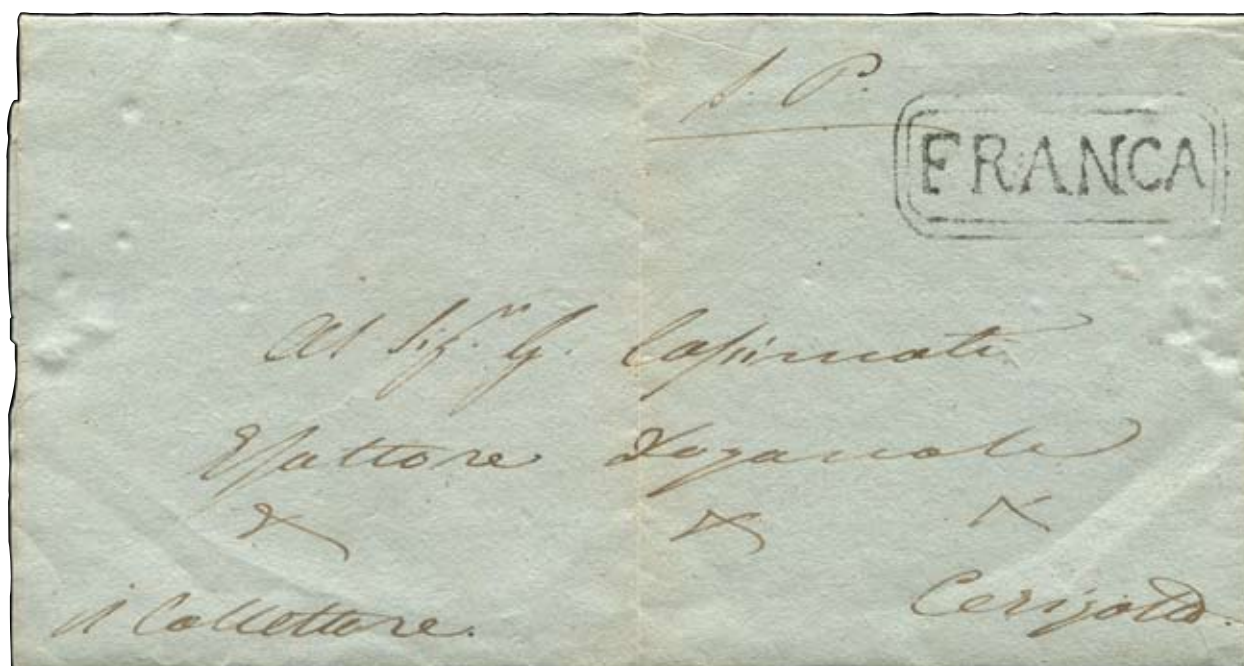 S. P.
FRANCA
Al Sig.r G. Casimati
Esattore Doganale
il Collettore.
Cerigotto.